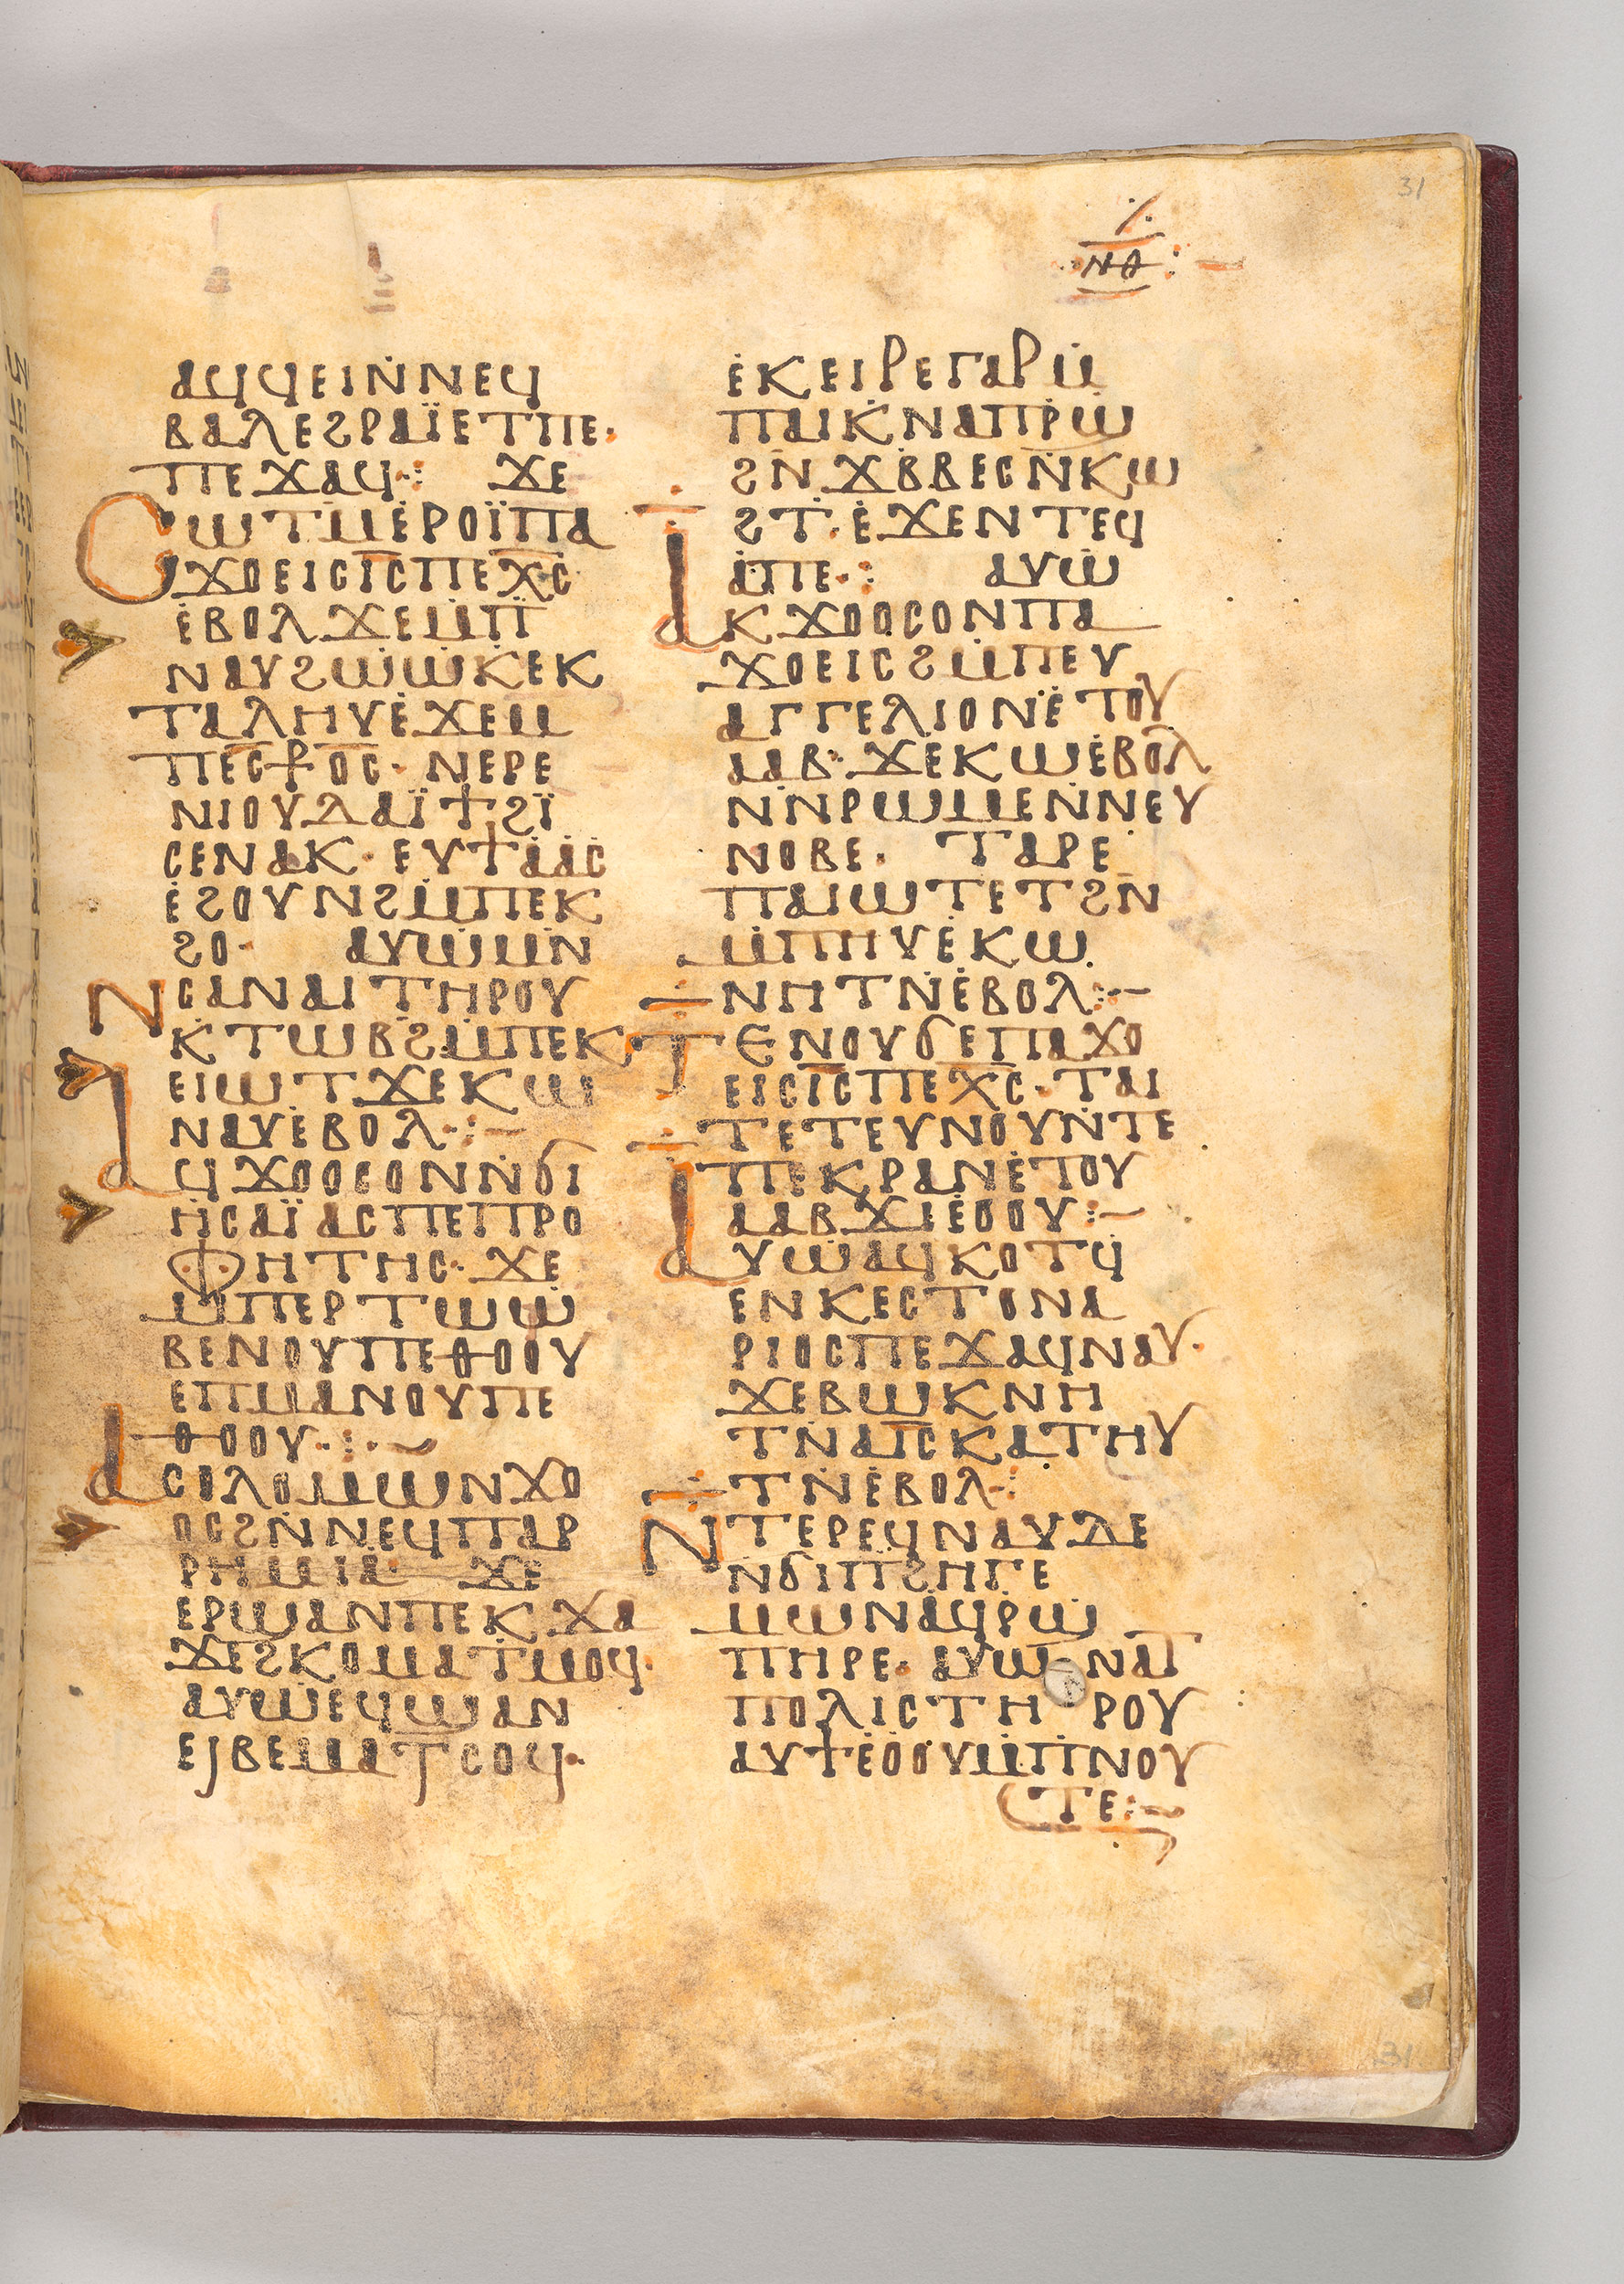 ⲛⲑ
ⲁϥϥⲉⲓⲛ̇ⲛⲉϥ
ⲃⲁⲗⲉϩⲣⲁⲓ̈ⲉⲧⲡⲉ·
ⲡⲉϫⲁϥ·: ϫⲉ
ⲥⲱⲧⲙⲉ̇ⲣⲟⲓ̈ⲡⲁ
ϫⲟⲉⲓⲥⲓ̅ⲥ̅ⲡⲉⲭ̅ⲥ̅
ⲉ̇ⲃⲟⲗϫⲉⲙ̇ⲡ̇
ⲛⲁⲩϩⲱⲱ̇ⲕⲉⲕ
ⲧⲁⲗⲏⲩⲉ̇ϫⲉⲙ
ⲡⲉⲥ̅ⳁⲟ̅ⲥ· ⲛⲉⲣⲉ
ⲛⲓⲟⲩⲇⲁⲓ̈ϯϩⲓ̈
ⲥⲉⲛⲁⲕ· ⲉⲩϯⲁ̇ⲁ̇ⲥ
ⲉ̇ϩⲟⲩⲛϩⲙ̇ⲡⲉⲕ
ϩⲟ· ⲁⲩⲱ̇ⲙ̇ⲛ̇
ⲛⲥⲁⲛⲁⲓⲧⲏⲣⲟⲩ
ⲕⲧⲱⲃϩⲙ̇ⲡⲉⲕ
ⲉⲓⲱⲧϫⲉⲕⲱ
ⲛⲁⲩⲉ̇ⲃⲟⲗ·:–
ⲁϥϫⲟⲟⲥⲟⲛⲛ̇ϭⲓ
ⲏ̇ⲥⲁⲓ̈ⲁⲥⲡⲉⲡⲣⲟ
ⲫⲏⲧⲏⲥ· ϫⲉ
ⲙ̇ⲡⲉⲣⲧⲱⲱ̇
ⲃⲉⲛⲟⲩⲡⲉⲑⲟⲟⲩ
ⲉⲡⲙⲁⲛⲟⲩⲡⲉ
ⲑⲟⲟⲩ·:·~
ⲁⲥⲟⲗⲟⲙⲱⲛϫⲟ
ⲟⲥϩⲛ̇ⲛⲉϥⲡⲁⲣ
ⲣⲏⲙⲓⲁ̇ ϫⲉ
ⲉⲣϣⲁⲛⲡⲉⲕϫⲁ
ϫⲉϩⲕⲟⲙⲁⲧⲙⲟϥ·
ⲁⲩⲱ̇ⲉϥϣⲁⲛ
ⲉⲓⲃⲉⲙⲁⲧⲥⲟϥ·
ⲉ̇ⲕⲉⲓⲣⲉⲅⲁⲣⲙ̇
ⲡⲁⲓⲕⲛⲁⲡⲣⲱ̇
ϩⲛ̇ϫⲃ̇ⲃⲉⲥⲛ̇ⲕⲱ
ϩⲧ·ⲉ̇ϫⲉⲛⲧⲉϥ
ⲁ̇ⲡⲉ·: ⲁⲩⲱ̇
ⲁⲕϫⲟⲟⲥⲟⲛⲡⲁ
ϫⲟⲉⲓⲥϩⲙ̇ⲡⲉⲩ
ⲁⲅⲅⲉⲗⲓⲟⲛⲉ̇ⲧⲟⲩ
ⲁⲁⲃ·ϫⲉⲕⲱⲉ̇ⲃⲟⲗ
ⲛ̇ⲛⲣⲱⲙⲉⲛ̇ⲛⲉⲩ
ⲛⲟⲃⲉ· ⲧⲁⲣⲉ
ⲡⲁⲓⲱⲧⲉⲧϩⲛ̇
ⲙ̇ⲡⲏⲩⲉ̇ⲕⲱ
ⲛⲏⲧⲛ̇ⲉ̇ⲃⲟⲗ:–
ⲧⲉⲛⲟⲩϭⲉⲡⲁϫⲟ
ⲉⲓⲥⲓ̅ⲥ̅ⲡⲉⲭ̅ⲥ̅· ⲧⲁⲓ
ⲧⲉⲧⲉⲩⲛⲟⲩⲛ̇ⲧⲉ
ⲡⲉⲕⲣⲁⲛⲉ̇ⲧⲟⲩ
ⲁⲁⲃϫⲓⲉ̇ⲟⲟⲩ:–
ⲁⲩⲱ̇ⲁϥⲕⲟⲧϥ̇
ⲉⲛⲕⲉⲥⲧⲟⲛⲁ
ⲣⲓⲟⲥⲡⲉϫⲁϥⲛⲁⲩ·
ϫⲉⲃⲱⲕⲛⲏ
ⲧⲛⲁⲡⲥⲕⲁⲧⲏⲩ
ⲧⲛ̇ⲉ̇ⲃⲟⲗ·:
ⲛⲧⲉⲣⲉϥⲛⲁⲩⲇⲉ
ⲛ̇ϭⲓⲡϩⲏⲅⲉ
ⲙⲱⲛⲁ̇ϥⲣ̇ϣ̇
ⲡⲏⲣⲉ· ⲁⲩⲱ ⲛⲁⲧ
ⲡⲟⲗⲓⲥⲧⲏ ⲣⲟⲩ
ⲁⲩϯⲉ̇ⲟⲟⲩⲙ̇ⲡ̇ⲛⲟⲩ
ⲧⲉ:~